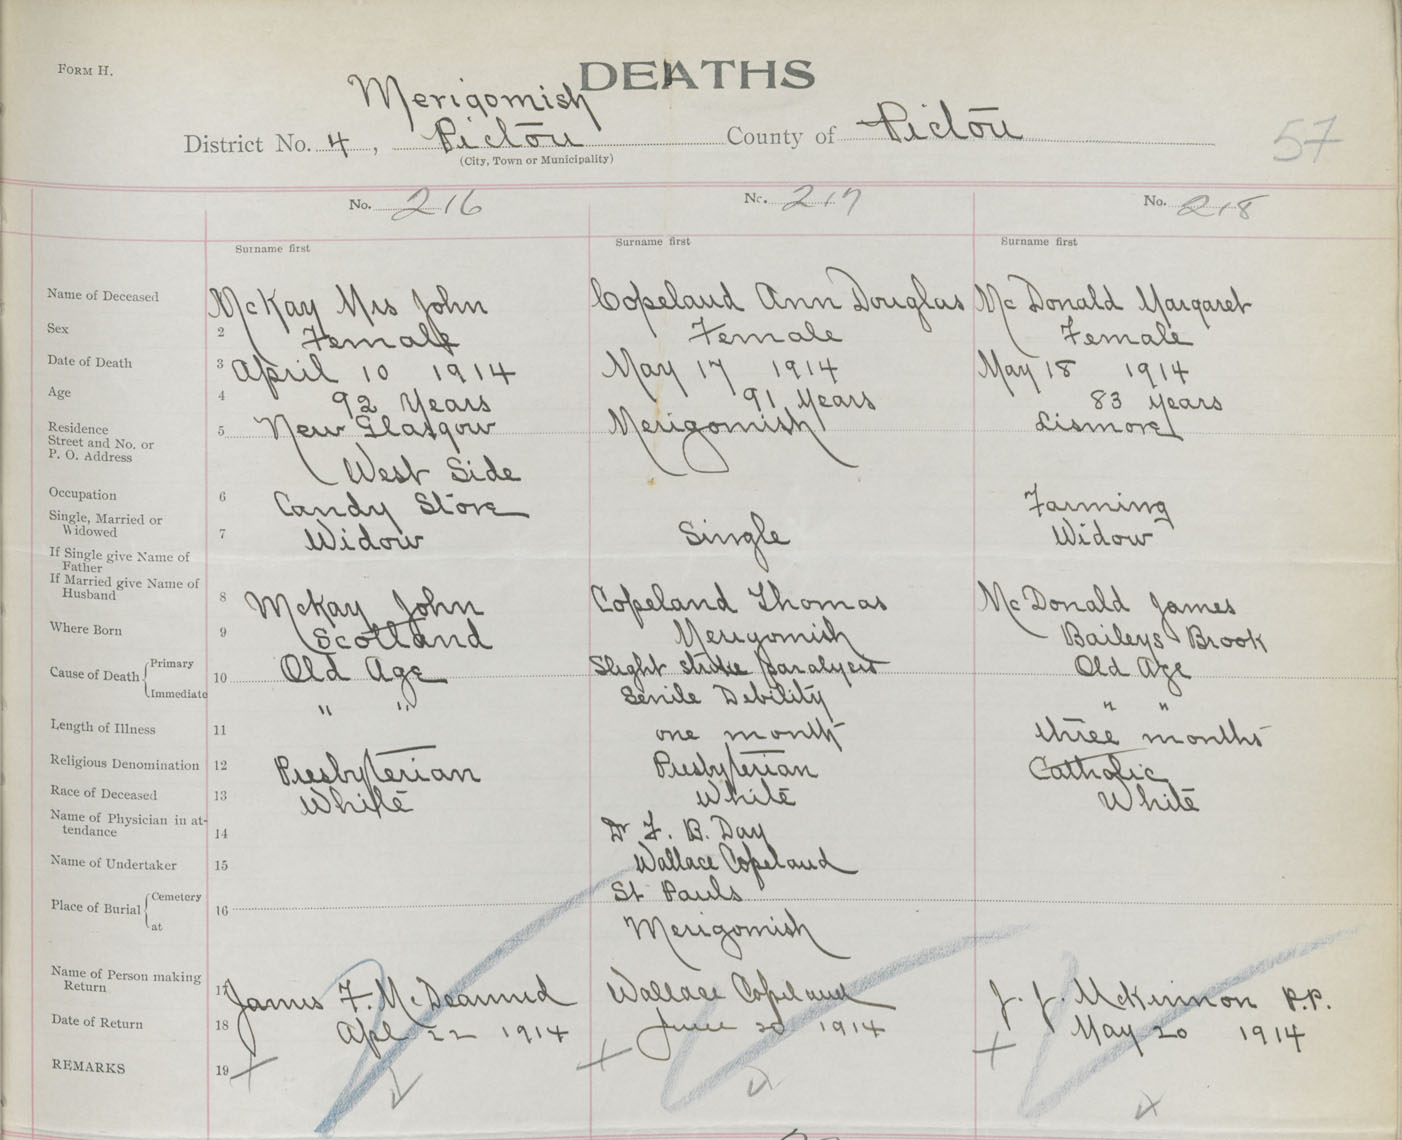 FORM H.
DEATHS
Merigomish
District No. 4, Pictou County of Pictou
(City, Town or Municipality)
57
No. 216 No. 217 No. 218
Surname first Surname first Surname first
Name of Deceased McKay Mrs John Copeland Ann Douglas McDonald Margaret
Sex 2 Female Female Female
Date of Death 3 April 10 1914 May 17 1914 May 18 1914
Age 4 92 Years 91 Years 83 years
Residence 5 New Glasgow Merigomish Lismore
Street and No. or
P. O. Address West Side
Occupation 6 Candy Store Farming
Single, Married or
Widowed 7 Widow Single Widow
If Single give Name of
Father
If Married give Name of
Husband 8 McKay John Copeland Thomas McDonald James
Where Born 9 Scotland Merigomish Baileys Brook
Cause of Death Primary 10 Old Age Slight stroke paralysis Old Age
Immediate " " Senile Debility " "
Length of Illness 11 one month three months
Religious Denomination 12 Presbyterian Presbyterian Catholic
Race of Deceased 13 White White White
Name of Physician in at-
tendance 14 Dr F. B. Day
Name of Undertaker 15 Wallace Copeland
Place of Burial Cemetery 16 St Pauls
at Merigomish
Name of Person making
Return 17 James F. McDearmid Wallace Copeland J. J. McKinnon P.P.
Date of Return 18 Apl 22 1914 June 20 1914 May 20 1914
REMARKS 19